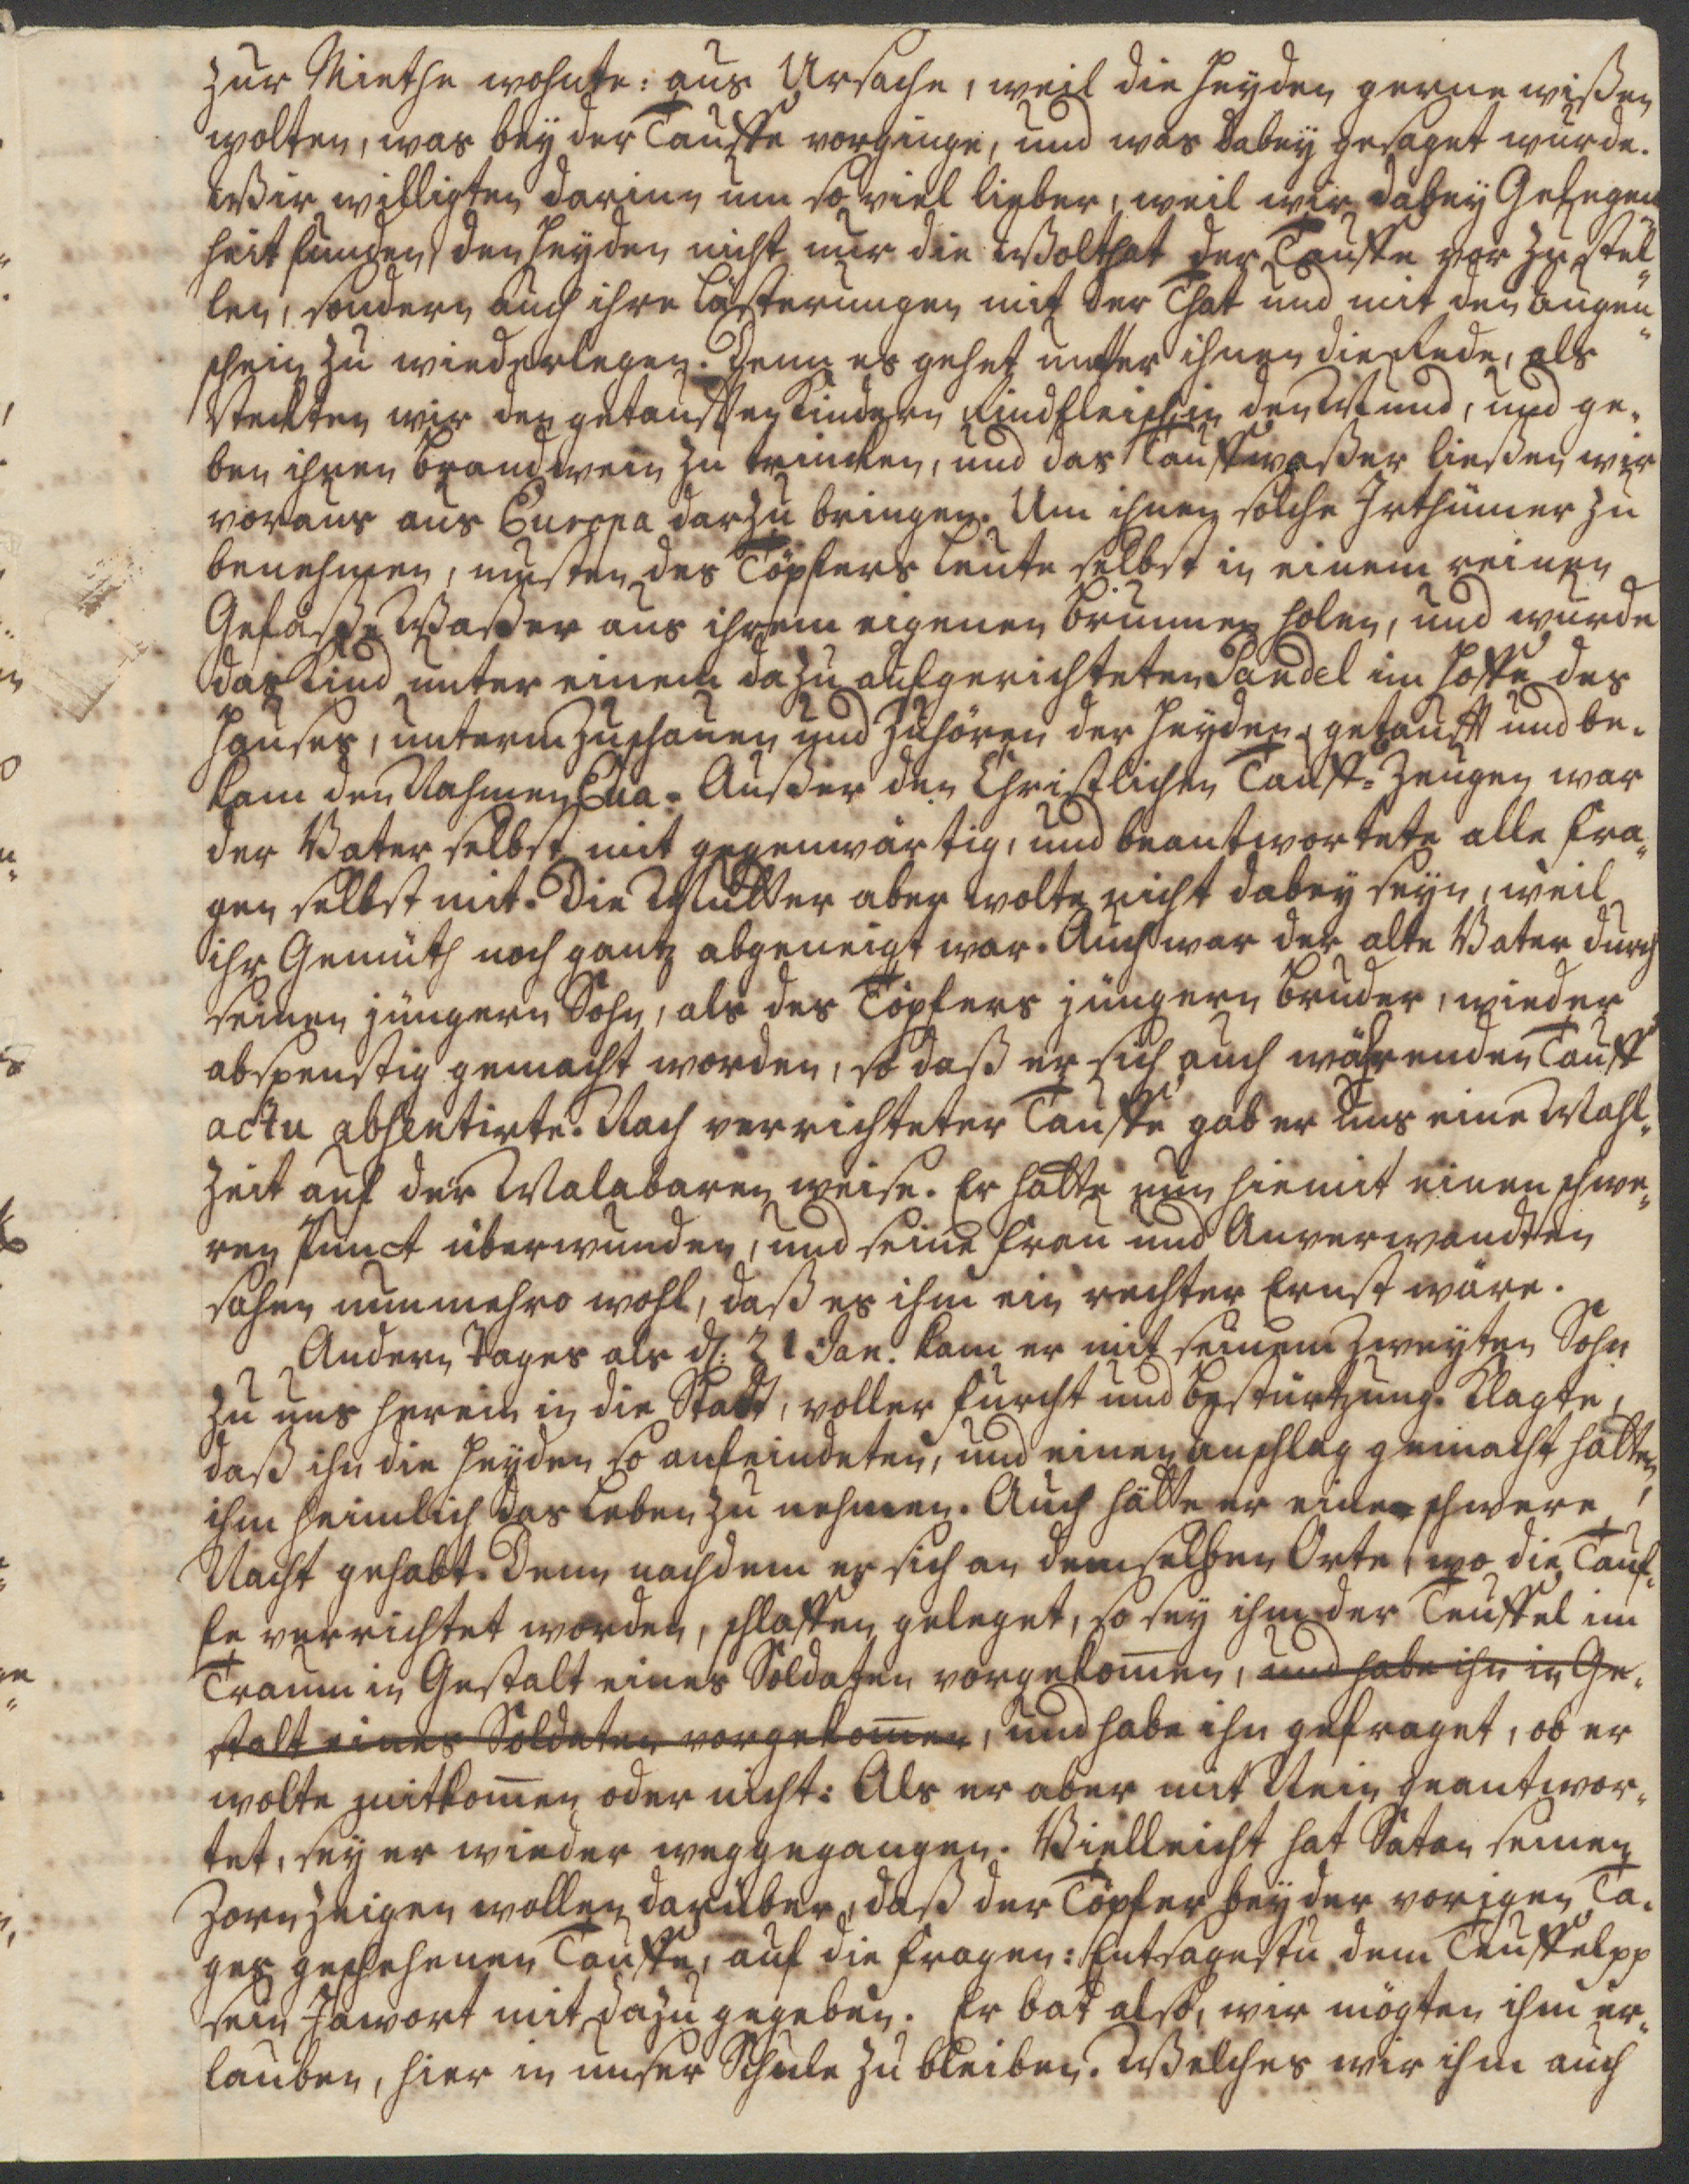 zur Miethe wohnte: aus Ursache, weil die Heyden gerne wißen
wolten, was bey der Tauffe vorginge, und was dabey gesaget würde.
Wir willigten darinn um so viel lieber, weil wir dabey Gelegen
heit funden den Heyden nicht nur die Wolthat der Tauffe vor zu stel„
len, sondern auch ihre Lästerungen mit der That und mit den Augen„
schein zu wiederlegen. Denn es gehet unter ihnen die Rede, als
steckten wir den getaufften Kindern Rindfleisch in den Mund, und ge„
ben ihnen Brandwein zu trincken, und das Tauffwaßer ließen wir
voraus aus Europa darzu bringen. Um ihnen solche Irthümer zu
benehmen, musten des Töpfers Leute selbst in einem reinen
Gefäße Waßer aus ihrem eigenen Brunnen holen, und wurde
das Kind unter einem dazu aufgerichteten Pandel im Hoffe des
Hauses, unterm Zuschauen und Zuhören der Heyden, getaufft und be„
kam den Nahmen Eva. Außer den Christlichen Tauff-Zeugen war
der Vater selbst mit gegenwärtig, und beantwortete alle Fra„
gen selbst mit. Die Mutter aber wolte nicht dabey seyn, weil
ihr Gemüth noch gantz abgeneigt war. Auch war der alte Vater durch
seinen jüngern Sohn, als des Töpfers jüngern Bruder, wieder
abspenstig gemacht worden, so daß er sich auch währenden Tauff
actu absentirte. Nach verrichteter Tauffe gab er uns eine Mahl„
zeit auf der Malabaren weise. Er hatte nun hiemit einen schwe„
ren Punct überwunden, und seine Frau und Anverwandten
sahen nunmehro wohl, daß es ihm ein rechter Ernst wäre.
Andern Tages als d. 21 Jan. kam er mit seinem zweyten Sohn
zu uns herein in die Stadt, voller Furcht und Bestürtzung. Klagte,
daß ihn die Heyden so anfeindeten, und einen anschlag gemacht hätten,
ihm heimlich das Leben zu nehmen. Auch hätte er eine schwere
Nacht gehabt. Denn nachdem er sich an demselben Orte, wo die Tauf„
fe verrichtet worden, schlaffen geleget, so sey ihm der Teuffel im
Traum in Gestalt eines Soldaten vorgekom̄en, und habe ihn in Ge„
stalt eines Soldaten vorgekom̄en, und habe ihn gefraget, ob er
wolte mitkom̄en oder nicht: Als er aber mit Nein geantwor„
tet, sey er wieder weggegangen. Vielleicht hat Satan seinen
Zorn zeigen wollen darüber, daß der Töpfer bey der vorigen Ta„
ges geschehenen Tauffe, auf die Fragen: Entsagestu dem Teuffel pp
sein Jawort mit dazu gegeben. Er bat also, wir mögten ihm er„
lauben, hier in unser Schule zu bleiben. Welches wir ihm auch